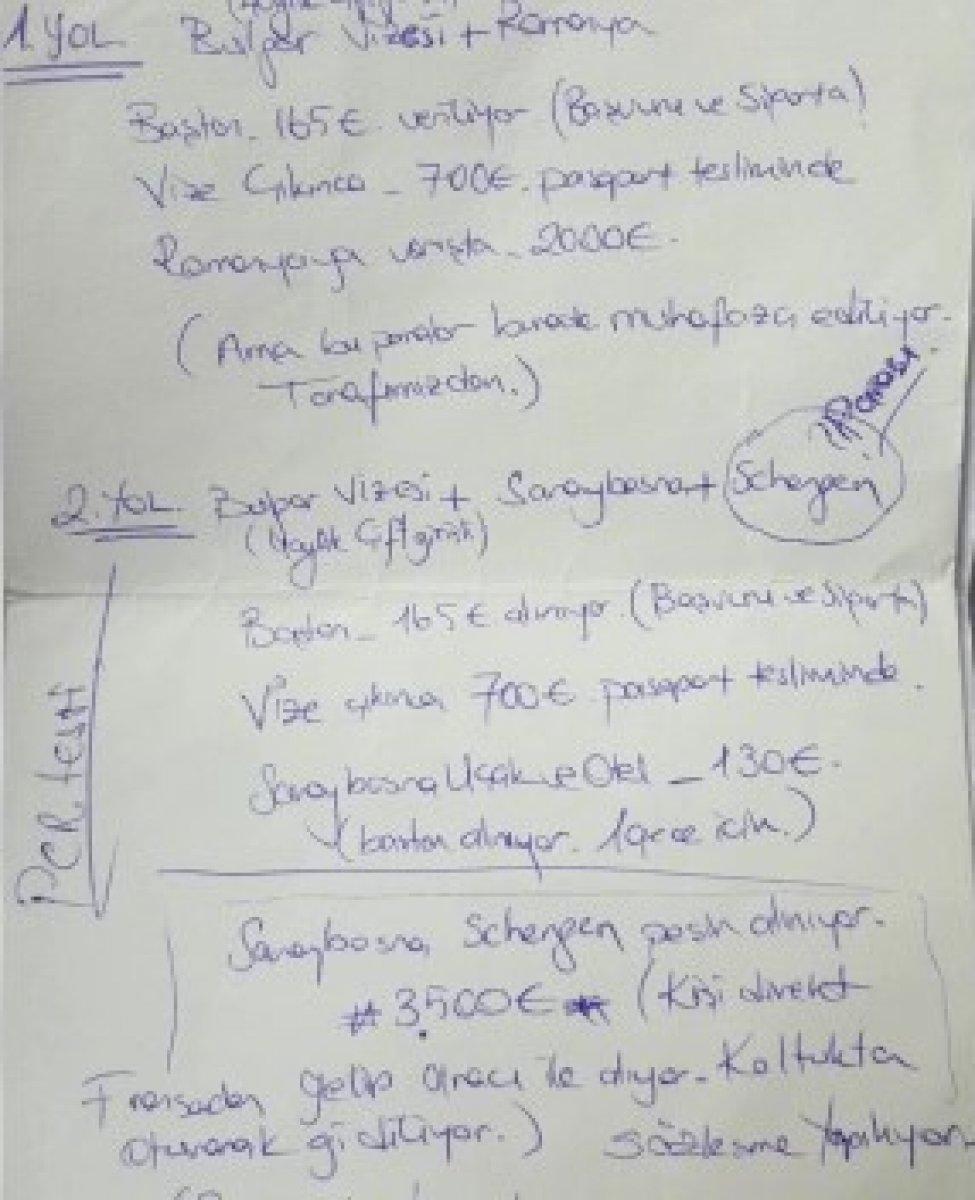 1. YOL Bulgar Vizesi + Romanya
Baştan - 165€ veriliyor (Başvuru ve Sigorta)
Vize Çıkınca - 700€. pasaport tesliminde
Romanyaya varışta - 2000€.
(Ama bu paralar burada muhafaza ediliyor.
Tarafımızdan.)
Parası
2. YOL. Bulgar Vizesi + Saraybosna + Schengen
(Aylık Çift giriş)
Baştan - 165€ alınıyor. (Başvuru ve Sigorta)
Vize çıkınca 700€ pasaport tesliminde.
PCR. testi
Saraybosna Uçak ve Otel - 130€.
(baştan alınıyor. 1 gece için.)
Saraybosna, Schengen peşin alınıyor.
# 3.500€ * (Kişi direkt
Fransadan gelip aracı ile alıyor. Koltukta
oturarak gidiliyor.) Sözleşme Yapılıyor.